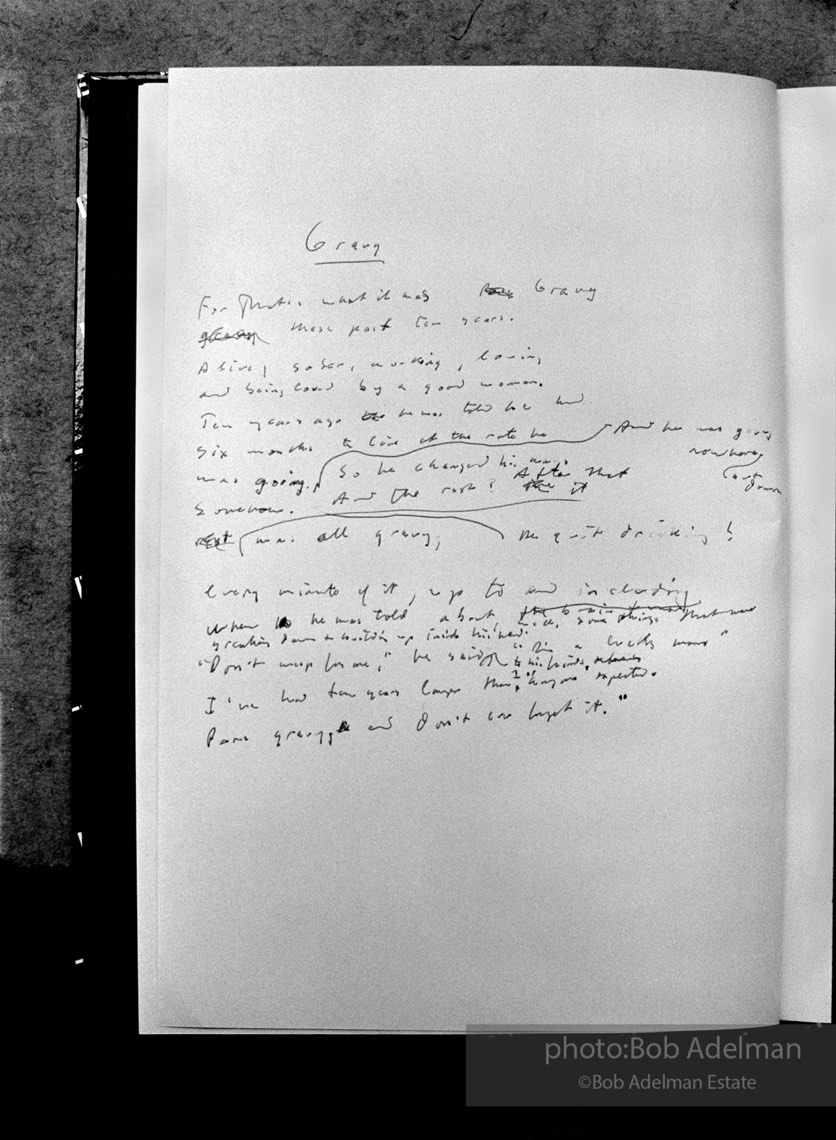 Gravy
For that's what it was Gravy
these past ten years.
Alive, sober, working, loving
and being loved by a good woman.
Ten years ago he was told he had
six months to live at the rate he
And he was going
nowhere
but down
was going. So he changed his ways
somehow. And the rest? After that it
was all gravy,
He quit drinking!
every minute of it, up to and including
when he was told about some things that were
breaking down & building up inside his head.
"Don't weep for me," he said "I'm a lucky man"
to his friends,
I've had ten years longer than I or anyone expected.
Pure gravy and don't ever forget it."
photo:Bob Adelman
©Bob Adelman Estate